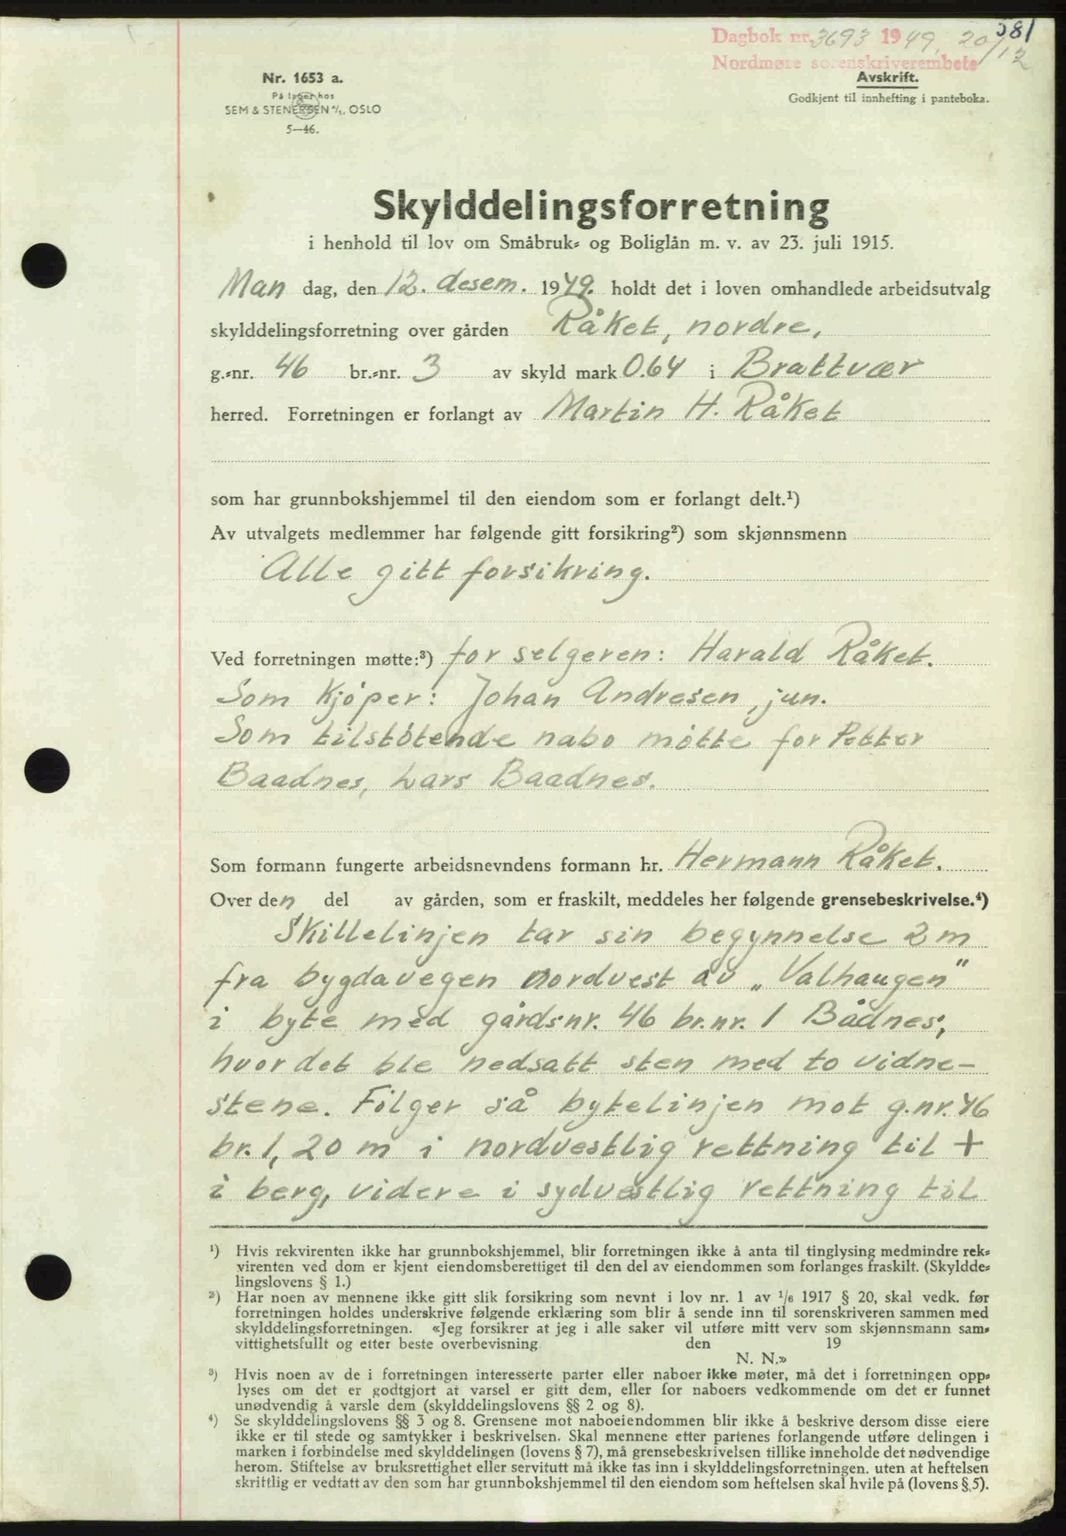 581
Dagbok nr. 3693 1949, 20/12
Nordmøre sorenskriverembete
Nr. 1653 a.
På lager hos
SEM & STENERSEN A/S, OSLO
5—46.
Avskrift.
Godkjent til innhefting i panteboka.
Skylddelingsforretning
i henhold til lov om Småbruk- og Boliglån m. v. av 23. juli 1915.
Man dag, den 12. desem. 1949. holdt det i loven omhandlede arbeidsutvalg
skylddelingsforretning over gården Råket, nordre,
g.-nr. 46 br.-nr. 3 av skyld mark 0.64 i Brattvær
herred. Forretningen er forlangt av Martin H. Råket
som har grunnbokshjemmel til den eiendom som er forlangt delt.¹)
Av utvalgets medlemmer har følgende gitt forsikring²) som skjønnsmenn
Alle gitt forsikring.
Ved forretningen møtte:³) for selgeren: Harald Råket.
Som kjøper: Johan Andresen, jun.
Som tilstøtende nabo møtte for Petter
Baadnes, Lars Baadnes.
Som formann fungerte arbeidsnevndens formann hr. Hermann Råket.
Over den del av gården, som er fraskilt, meddeles her følgende grensebeskrivelse.⁴)
Skillelinjen tar sin begynnelse 2 m
fra bygdavegen nordvest av „Valhaugen"
i byte med gårdsnr. 46 br.nr. 1 Bådnes,
hvor det ble nedsatt sten med to vidne-
stene. Følger så bytelinjen mot g.nr. 46
br. 1, 20 m i nordvestlig rettning til +
i berg, videre i sydvestlig rettning til
¹) Hvis rekvirenten ikke har grunnbokshjemmel, blir forretningen ikke å anta til tinglysing medmindre rek-
virenten ved dom er kjent eiendomsberettiget til den del av eiendommen som forlanges fraskilt. (Skyldde-
lingslovens § 1.)
²) Har noen av mennene ikke gitt slik forsikring som nevnt i lov nr. 1 av 1/6 1917 § 20, skal vedk. før
forretningen holdes underskrive følgende erklæring som blir å sende inn til sorenskriveren sammen med
skylddelingsforretningen. «Jeg forsikrer at jeg i alle saker vil utføre mitt verv som skjønnsmann sam-
vittighetsfullt og etter beste overbevisning den 19
N. N.»
³) Hvis noen av de i forretningen interesserte parter eller naboer ikke møter, må det i forretningen opp-
lyses om det er godtgjort at varsel er gitt dem, eller for naboers vedkommende om det er funnet
unødvendig å varsle dem (skylddelingslovens §§ 2 og 8).
⁴) Se skylddelingslovens §§ 3 og 8. Grensene mot naboeiendommen blir ikke å beskrive dersom disse eiere
ikke er til stede og samtykker i beskrivelsen. Skal mennene etter partenes forlangende utføre delingen i
marken i forbindelse med skylddelingen (lovens § 7), må grensebeskrivelsen tillike inneholde det nødvendige
herom. Stiftelse av bruksrettighet eller servitutt må ikke tas inn i skylddelingsforretningen, uten at heftelsen
skriftlig er vedtatt av den som har grunnbokshjemmel til den eiendom som heftelsen skal hvile på (lovens § 5).